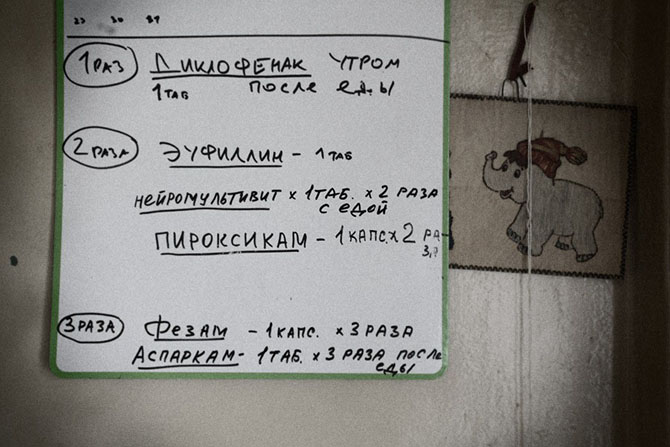 23 30 31
1 РАЗ ДИКЛОФЕНАК УТРОМ
1 ТАБ ПОСЛЕ ЕДЫ
2 РАЗА ЭУФИЛЛИН - 1 ТАБ
НЕЙРОМУЛЬТИВИТ х 1 ТАБ. х 2 РАЗА
С ЕДОЙ
ПИРОКСИКАМ - 1 КАПС. х 2 РА
3 РАЗА ФЕЗАМ - 1 КАПС. х 3 РАЗА
АСПАРКАМ - 1 ТАБ. х 3 РАЗА ПОСЛЕ
ЕДЫ